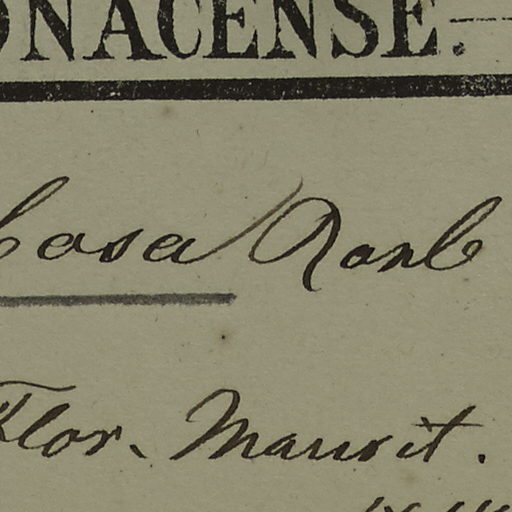 ONACENSE.
bosa Roxb
Flor. Maurit.